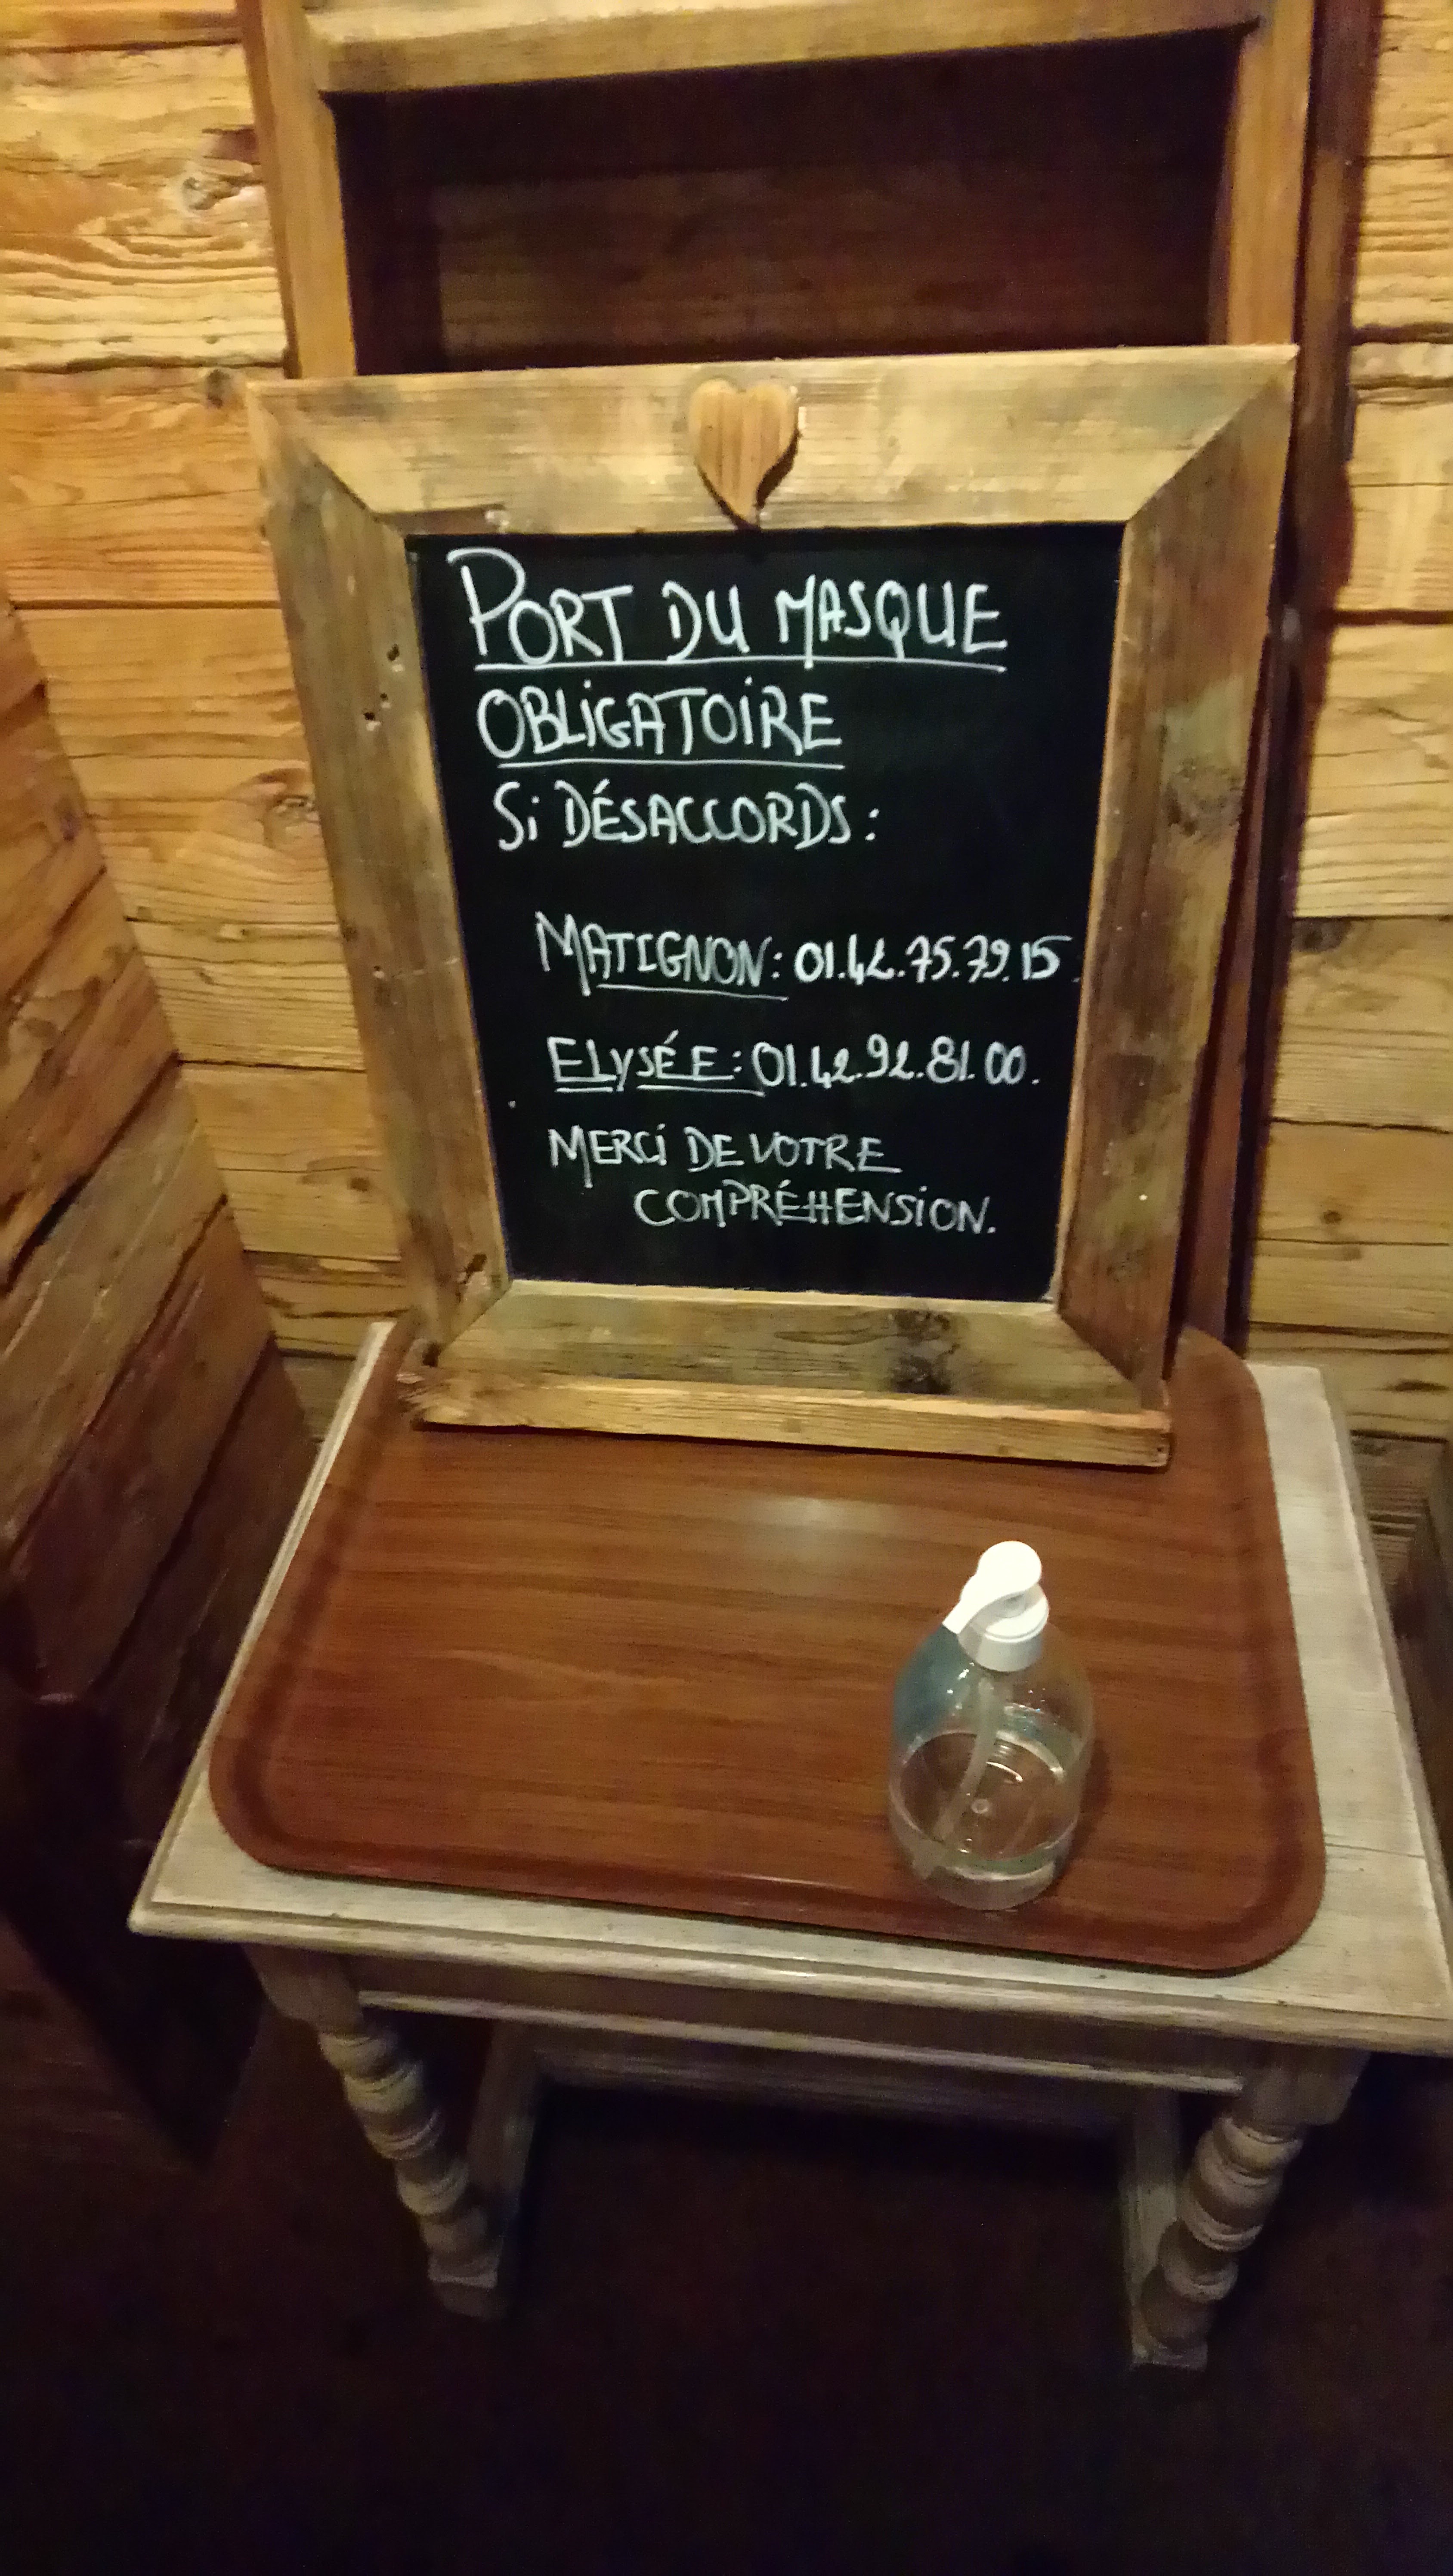 PORT DU MASQUE
OBLiGATOiRE
Si DÉSACCORDS :
MATIGNON : 01.42.75.79.15.
ELYSÉE : 01.42.92.81.00.
MERCi DE VOTRE
COMPRÉHENSiON.